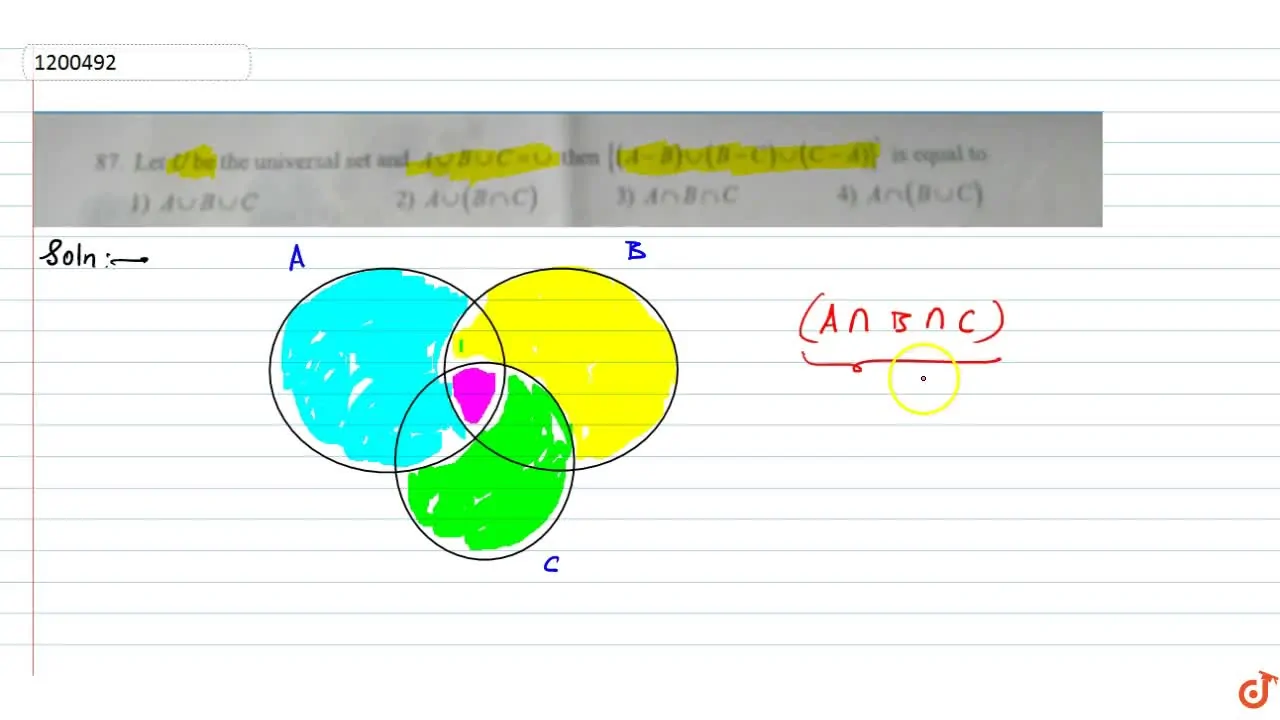 1200492
87. Let U be the universal set and A∪B∪C=∪ then {(A−B)∪(B−C)∪(C−A)}' is equal to
1) A∪B∪C 2) A∪(B∩C) 3) A∩B∩C 4) A∩(B∪C)
Soln:—
A B
(A∩B∩C)
C